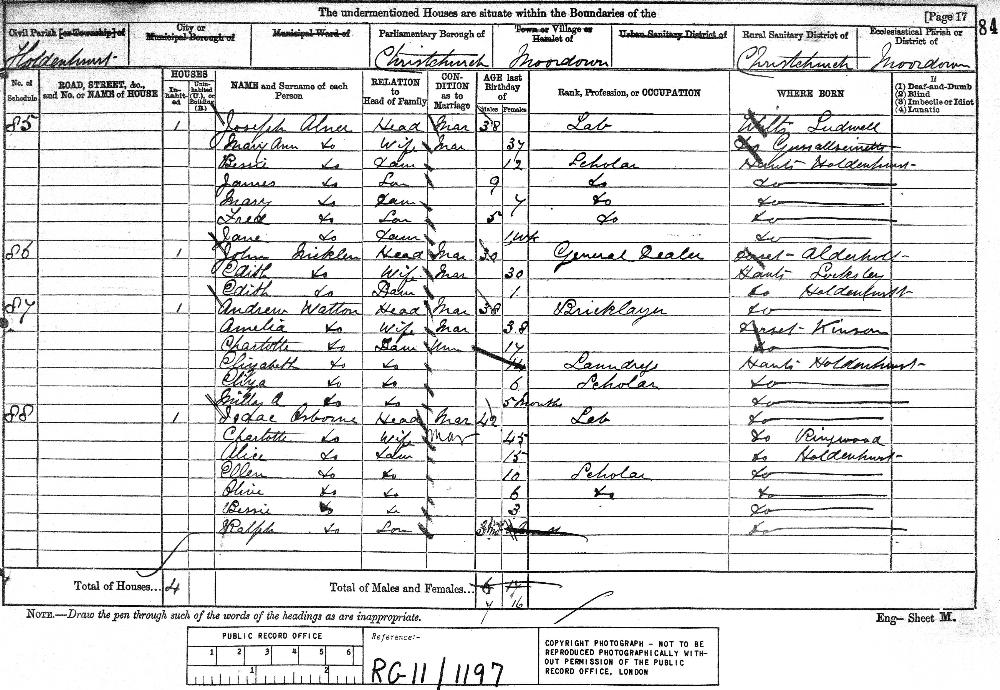 The undermentioned Houses are situate within the Boundaries of the
[Page 17
84
Civil Parish [or Township] of
City or Municipal Borough of
Municipal Ward of
Parliamentary Borough of
Town or Village or Hamlet of
Urban Sanitary District of
Rural Sanitary District of
Ecclesiastical Parish or District of
Holdenhurst Christchurch Moordown Christchurch Moordown
No. of Schedule
ROAD, STREET, &c., and No. or NAME of HOUSE
HOUSES
Inhabited
Uninhabited (U.), or Building (B.)
NAME and Surname of each Person
RELATION to Head of Family
CONDITION as to Marriage
AGE last Birthday of
Males Females
Rank, Profession, or OCCUPATION
WHERE BORN
If
(1) Deaf-and-Dumb
(2) Blind
(3) Imbecile or Idiot
(4) Lunatic
85 1 Joseph Alner Head Mar 38 Lab Wilts Ludwell
Mary Ann do Wife Mar 37 do
Bessie do Daur 12 Scholar Hants Holdenhurst
James do Son 9 do do
Mary do Daur 7 do do
Fred do Son 5 do do
Jane do Daur 1 wk do
86 1 John Head Mar 30 General Dealer Dorset Alderholt
Edith do Wife Mar 30 Hants
Edith do Daur 1 do Holdenhurst
87 1 Andrew Watton Head Mar 38 Bricklayer do
Amelia do Wife Mar 38 Dorset Kinson
Charlotte do Daur Unm 17 do
Elizabeth do do Laundry Hants Holdenhurst
Eliza do do 6 Scholar do
A do do 5 Months do
88 1 Isaac Osborne Head Mar 42 Lab do
Charlotte do Wife Mar 45 do Ringwood
Alice do Daur 15 do Holdenhurst
Ellen do do 10 Scholar do
Olive do do 6 do do
Bessie do do 3 do
Ralph do Son do
Total of Houses... 4
Total of Males and Females... 6 17
7 16
NOTE.—Draw the pen through such of the words of the headings as are inappropriate.
Eng— Sheet M.
PUBLIC RECORD OFFICE
1 2 3 4 5 6
1 2
Reference:-
RG 11/1197
COPYRIGHT PHOTOGRAPH - NOT TO BE
REPRODUCED PHOTOGRAPHICALLY WITH-
OUT PERMISSION OF THE PUBLIC
RECORD OFFICE, LONDON